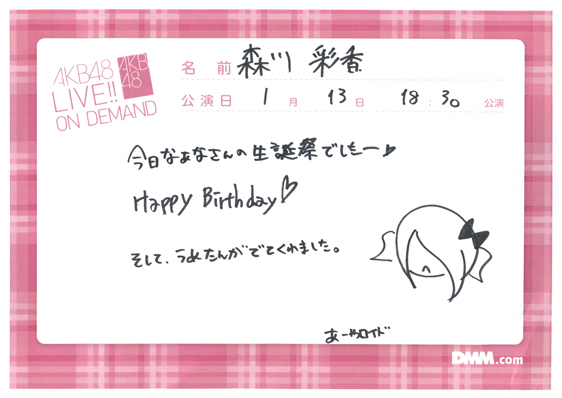 AKB48
LIVE!!
ON DEMAND
AKB
48
名前 森川 彩香
公演日 1月 13日 18:30 公演
今日なぁなさんの生誕祭でしたー♪
Happy Birthday♡
そして、うめたんがでてくれました。
あーやロイド
DMM.com